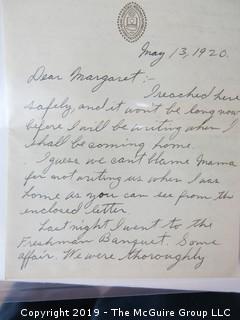 May 13, 1920.
Dear Margaret:-
I reached here
safely, and it won't be long now
before I will be writing when I
shall be coming home.
I guess we can't blame Mama
for not writing us when I was
home as you can see from the
enclosed letter.
Last night I went to the
Freshman Banquet. Some
affair. We were thoroughly
Copyright 2019 - The McGuire Group LLC